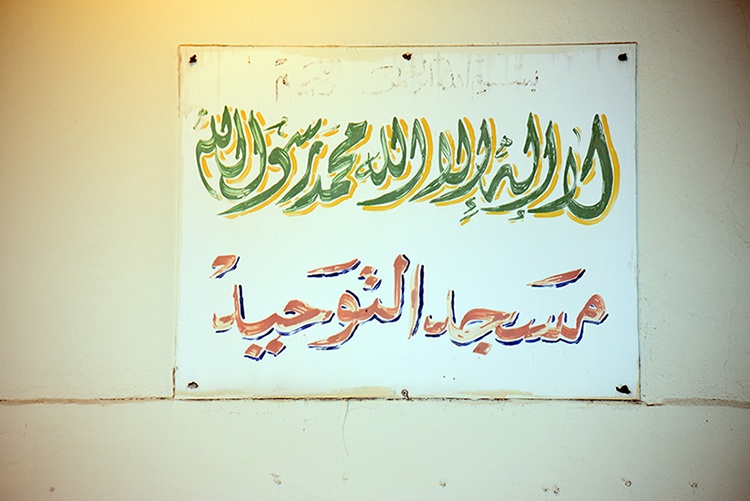 بسم الله الرحمن الرحيم
لا إله إلا الله محمد رسول الله
مسجد التوحيد